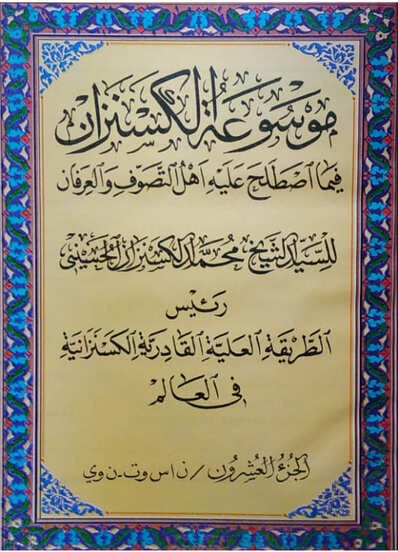 موسوعة الكسنزان
فيما اصطلح عليه اهل التصوف والعرفان
للسيد الشيخ محمد الكسنزان الحسيني
رئيس
الطريقة العلية القادرية الكسنزانية
في العالم
الجزء العشرون / ن ا س و ت - ن و ي